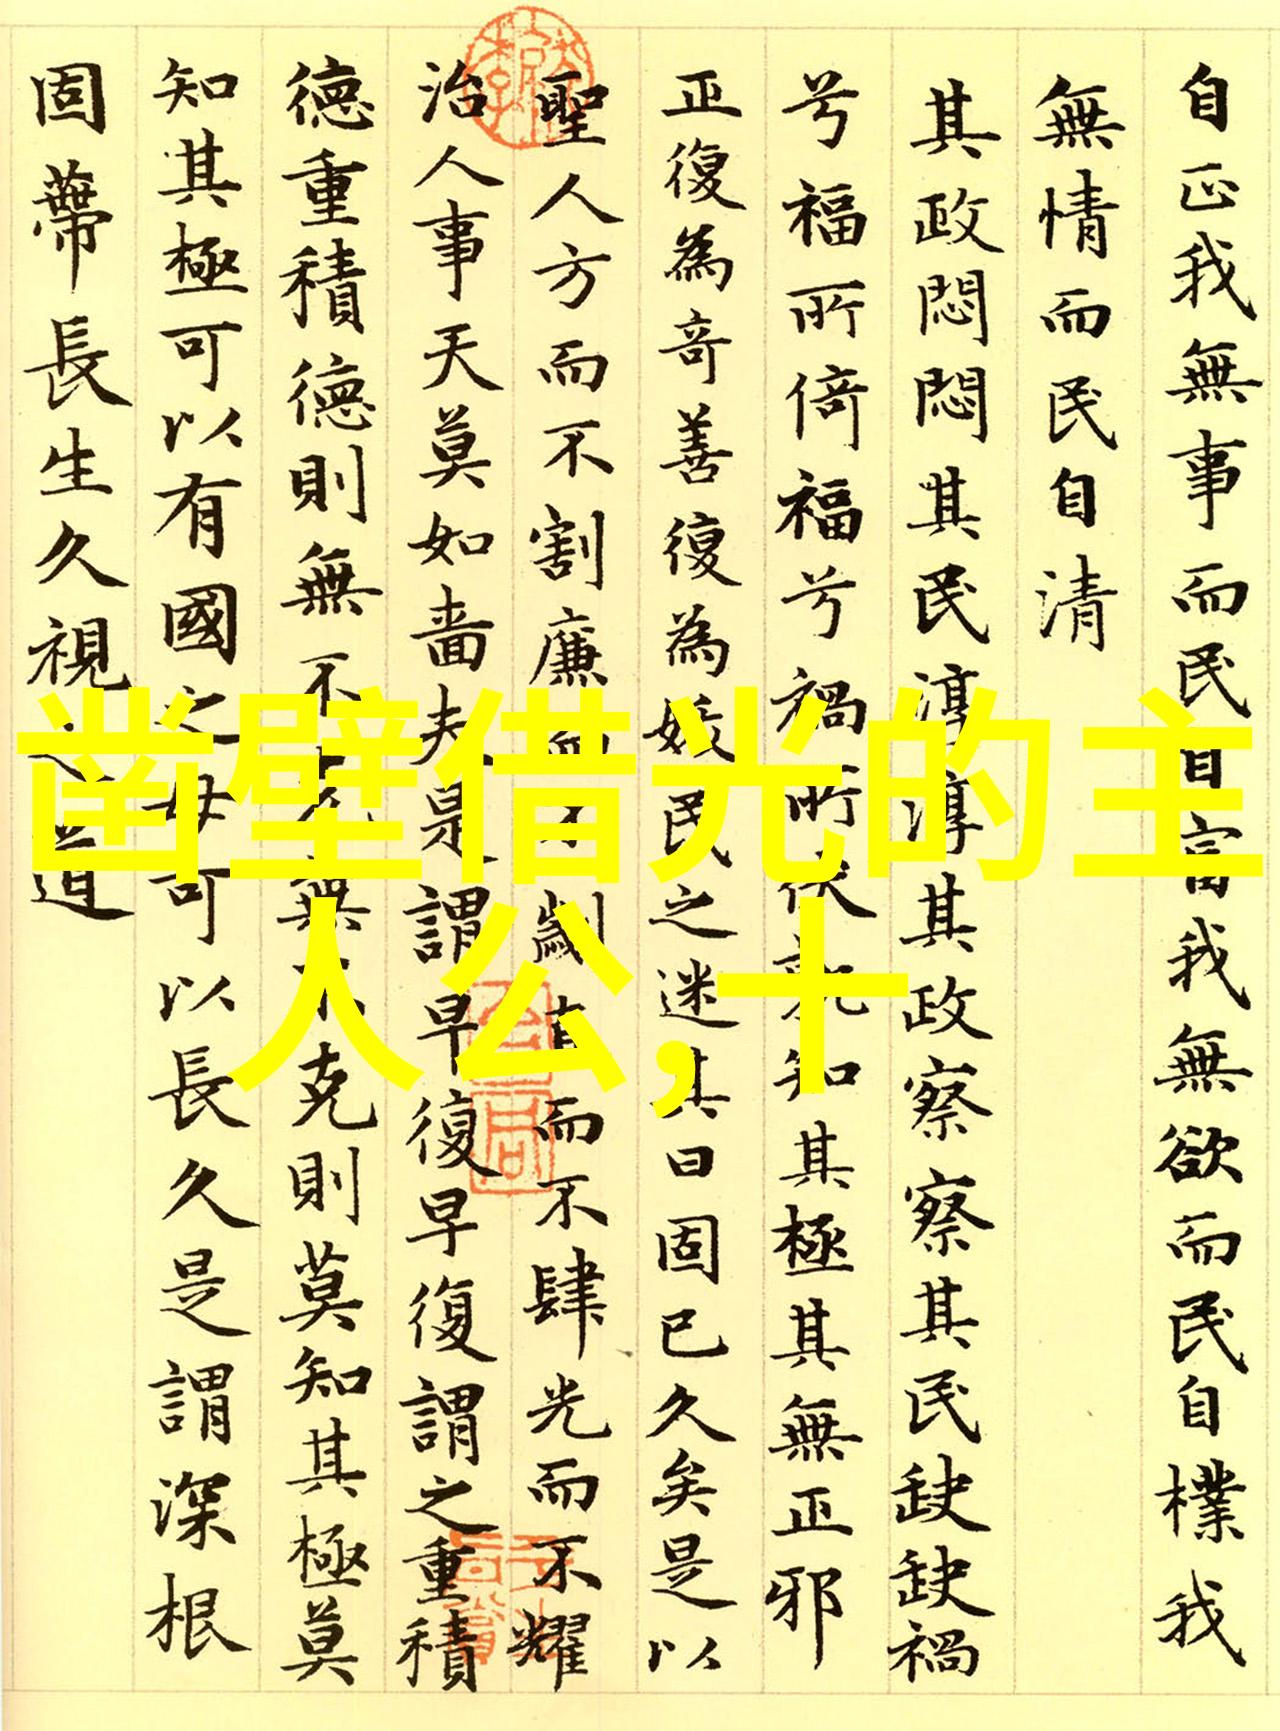 自正我無事而民自富我無欲而民自樸我
無情而民自清
其政悶悶其民淳淳其政察察其民缺缺禍
兮福所倚福兮禍所伏孰知其極其無正邪
正復為奇善復為妖民之迷其日固已久矣是以
聖人方而不割廉而不劌直而不肆光而不耀
治人事天莫如嗇夫是謂早復早復謂之重積
德重積德則無不克無不克則莫知其極莫
知其極可以有國之母可以長久是謂深根
固蔕長生久視之道
凿壁借光的主
人公,十